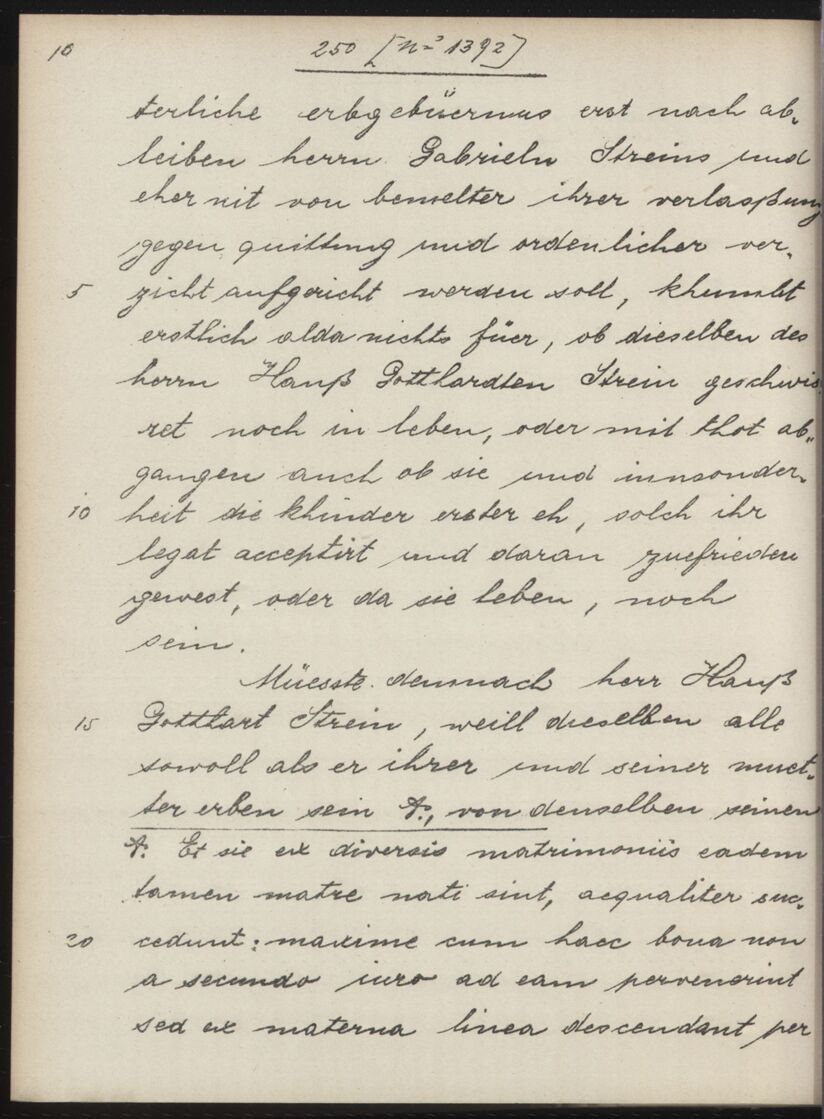 10 250 [No 1392]
terliche erbgebüernus erst nach ab-
leiben herrn Gabrieln Streins und
eher nit von bemelter ihrer verlaßung
gegen quittung und ordenlicher ver-
5 zicht aufgericht werden soll, khumbt
erstlich alda nichts füer, ob dieselben des
herrn Hanß Gotthardten Strein geschwis-
ret noch in leben, oder mit thot ab-
gangen auch ob sie und innsonder-
10 heit die khinder erster eh, solch ihr
legat acceptirt und daran zuefrieden
gewest, oder da sie leben, noch
sein.
Müesste demnach herr Hanß
15 Gotthart Strein, weill dieselben alle
sowoll als er ihrer und seiner muet-
ter erben sein A., von denselben seinen
A. Et sie ex diversis matrimoniis eadem
tamen matre nati sint, aequaliter suc-
20 cedunt: maxime cum haec bona non
a secundo viro ad eam pervenerint
sed ex materna linea descendant per